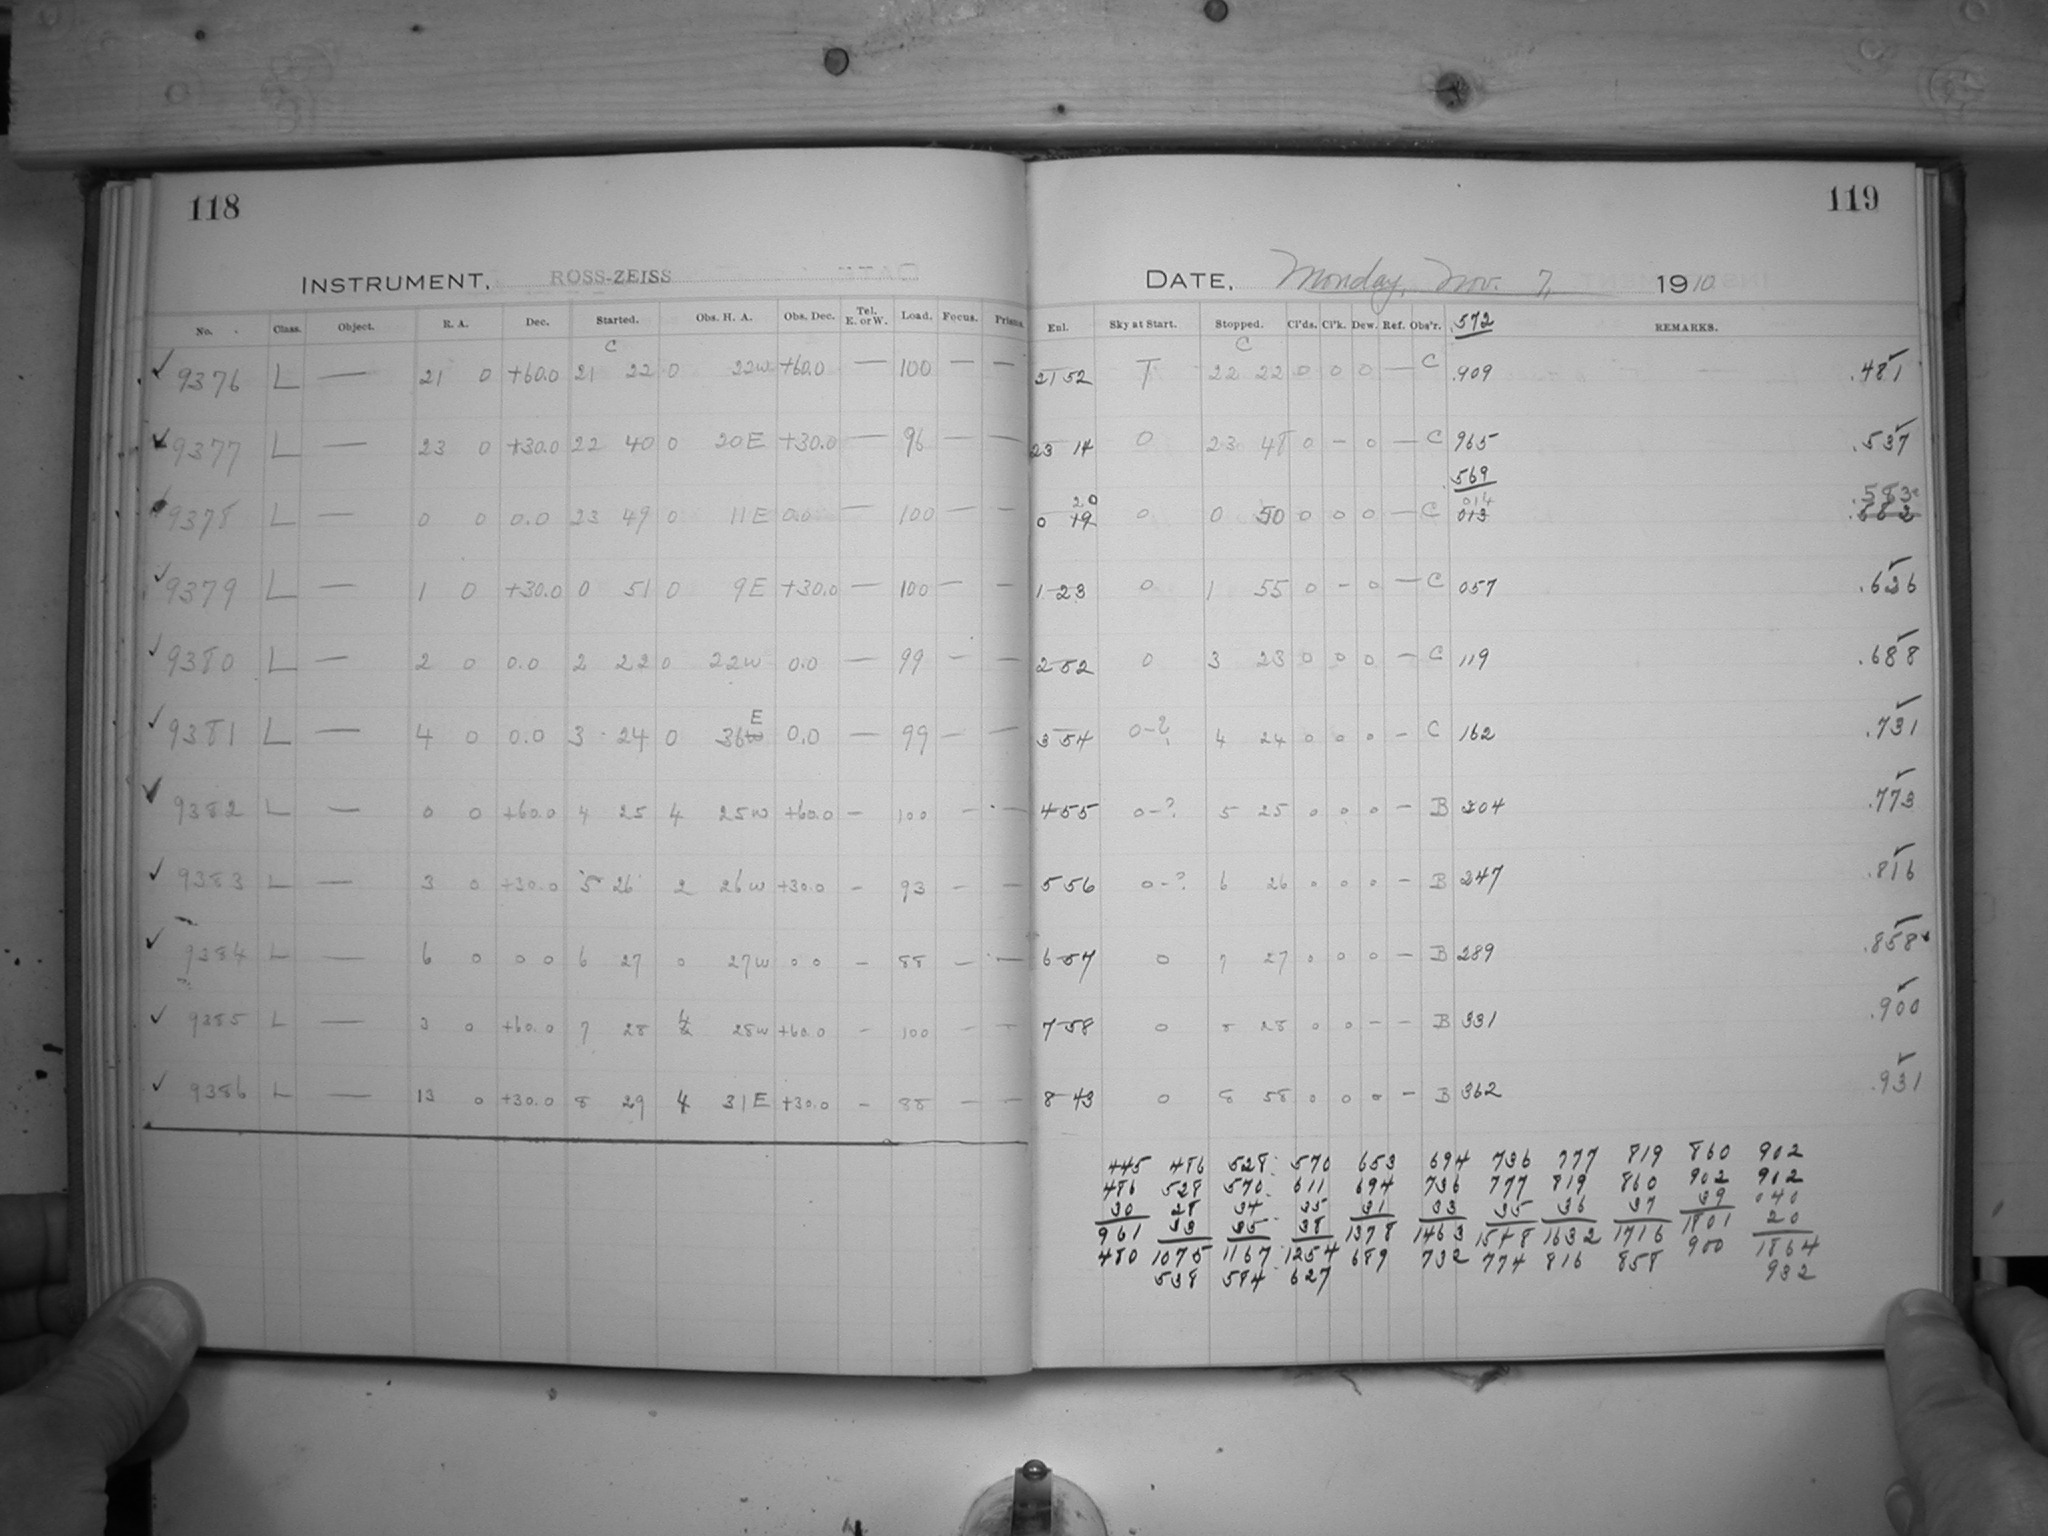 118
INSTRUMENT, ROSS-ZEISS
No. Class. Object. R. A. Dec. Started. Obs. H. A. Obs. Dec. Tel. E. or W. Load. Focus. Prisms.
C
✓ 9376 L — 21 0 +60.0 21 22 0 22w +60.0 — 100 — —
✓ 9377 L — 23 0 +30.0 22 40 0 20E +30.0 — 96 — —
9378 L — 0 0 0.0 23 49 0 11E 0.0 — 100 — —
✓ 9379 L — 1 0 +30.0 0 51 0 9E +30.0 — 100 — —
✓ 9380 L — 2 0 0.0 2 22 0 22w 0.0 — 99 — —
E
✓ 9381 L — 4 0 0.0 3 24 0 36w 0.0 — 99 — —
✓ 9382 L — 0 0 +60.0 4 25 4 25w +60.0 — 100 — —
✓ 9383 L — 3 0 +30.0 5 26 2 26w +30.0 — 93 — —
✓ 9384 L — 6 0 0 0 6 27 0 27w 0 0 — 88 — —
✓ 9385 L — 3 0 +60.0 7 28 4 28w +60.0 — 100 — —
✓ 9386 L — 13 0 +30.0 8 29 4 31E +30.0 — 88 — —
119
DATE, Monday, Nov. 7, 1910
Eul. Sky at Start. Stopped. Cl'ds. Cl'k. Dew. Ref. Obs'r. .572 REMARKS.
C
21 52 T 22 22 0 0 0 — C .909 .481 ✓
23 14 0 23 48 0 — 0 — C 965 .537 ✓
.569
20 014 .583
0 19 0 0 50 0 0 0 — C 013 .582
1 23 0 1 55 0 — 0 — C 057 .626 ✓
2 52 0 3 23 0 0 0 — C 119 .688 ✓
3 54 0-? 4 24 0 0 0 — C 162 .731 ✓
4 55 0-? 5 25 0 0 0 — B 204 .773 ✓
5 56 0-? 6 26 0 0 0 — B 247 .816 ✓
6 57 0 7 27 0 0 0 — B 289 .858 ✓
7 58 0 8 28 0 0 — — B 331 .900 ✓
8 43 0 8 58 0 0 0 — B 362 .931 ✓
445 486 528 570 653 694 736 777 819 860 902
486 528 570 611 694 736 777 819 860 902 902
30 28 34 35 31 33 35 36 37 39 040
961 33 35 38 1378 1463 1548 1632 1716 1801 20
480 1075 1167 1254 689 732 774 816 858 900 1864
538 584 627 932